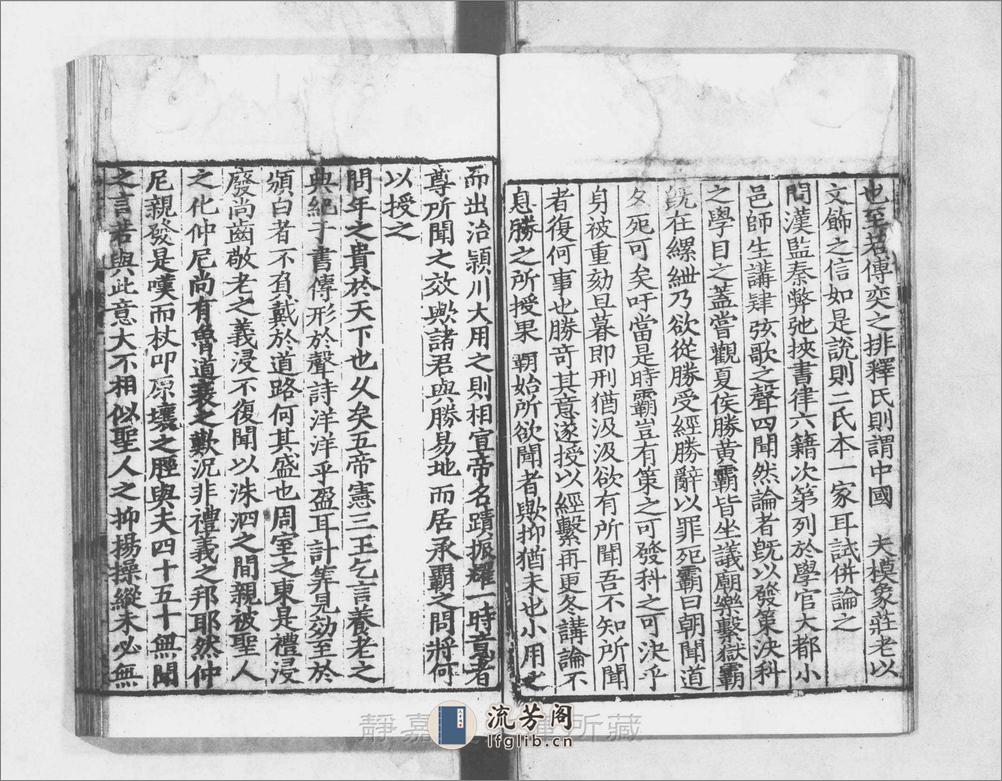 也至若傅奕之排釋氏則謂中國 夫模象莊老以
文飾之信如是說則二氏本一家耳試併論之
問漢監秦弊弛挾書律六籍次第列於學官大都小
邑師生講肄弦歌之聲四聞然論者旣以發策決科
之學目之蓋嘗觀夏侯勝黃霸皆坐議廟樂繫獄霸
旣在縲紲乃欲從勝受經勝辭以罪死霸曰朝聞道
夕死可矣吁當是時霸豈有策之可發科之可決乎
身被重劾旦暮即刑猶汲汲欲有所聞吾不知所聞
者復何事也勝奇其意遂授以經繫再更冬講論不
息勝之所授果 霸始所欲聞者歟抑猶未也小用之
而出治潁川大用之則相宣帝名蹟振耀一時意者
尊所聞之效歟諸君與勝易地而居承霸之問將何
以授之
問年之貴於天下也久矣五帝憲三王乞言養老之
典紀于書傳形於聲詩洋洋乎盈耳計筭見効至於
頒白者不負戴於道路何其盛也周室之東是禮浸
廢尚齒敬老之義浸不復聞以洙泗之間親被聖人
之化仲尼尚有魯道衰之歎況非禮義之邦耶然仲
尼親發是嘆而杖叩原壤之脛與夫四十五十無聞
之言若與此意大不相似聖人之抑揚操縱未必無
靜嘉 所藏
流芳阁
lfglib.cn